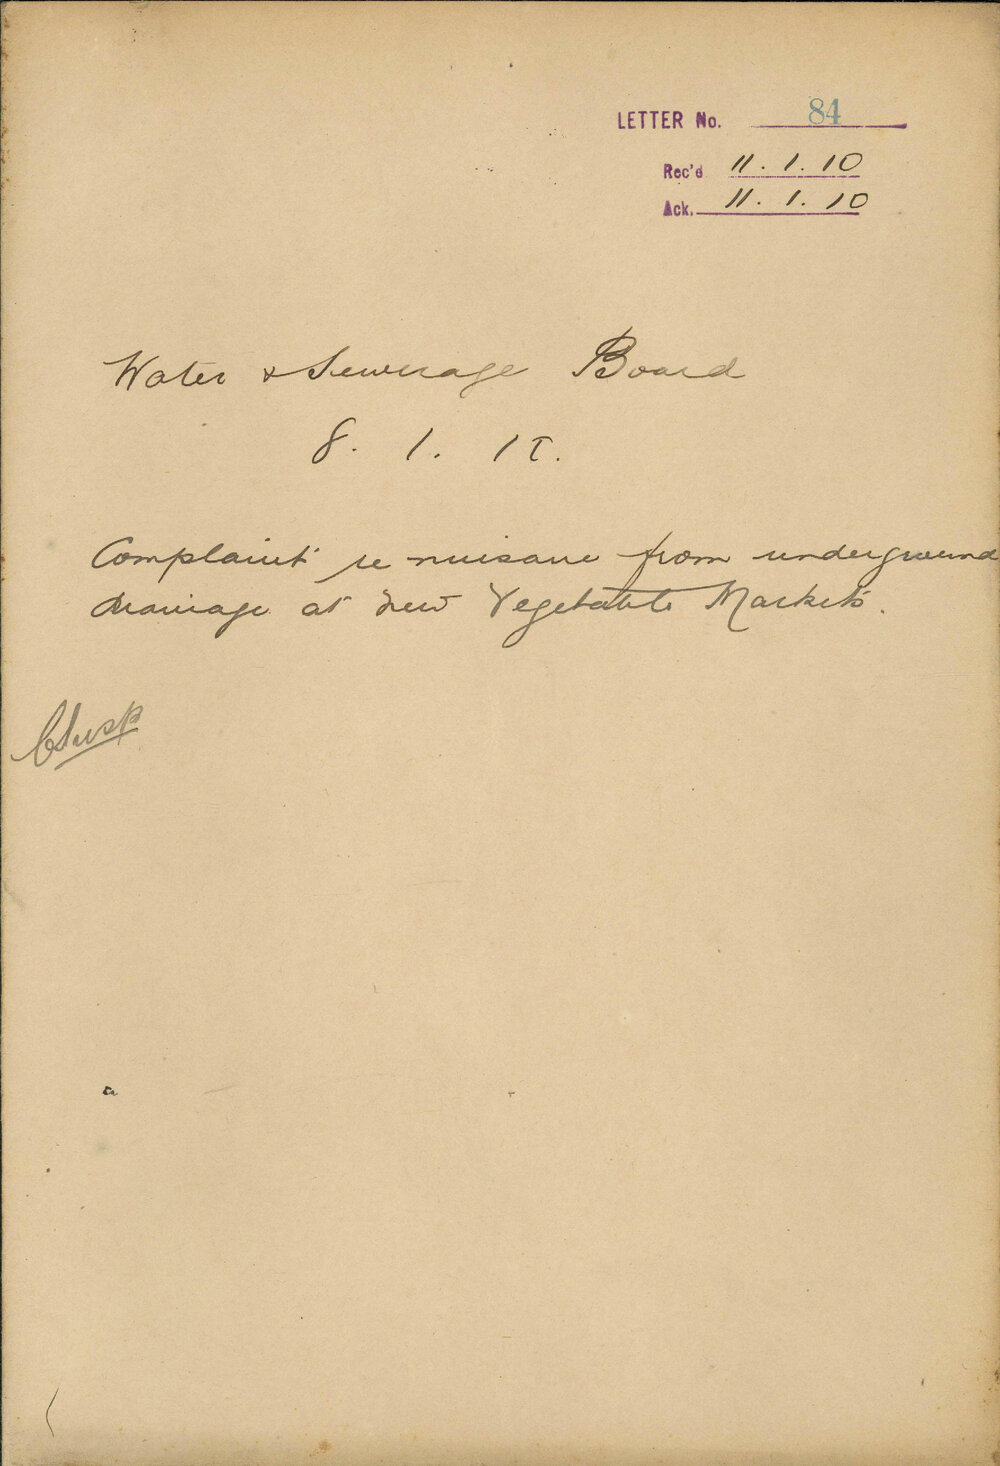 LETTER No. 84
Rec'd 11. 1. 10
Ack. 11. 1. 10
Water & Sewerage Board
8. 1. 10.
Complaint re nuisance from underground
drainage at new Vegetable Markets.